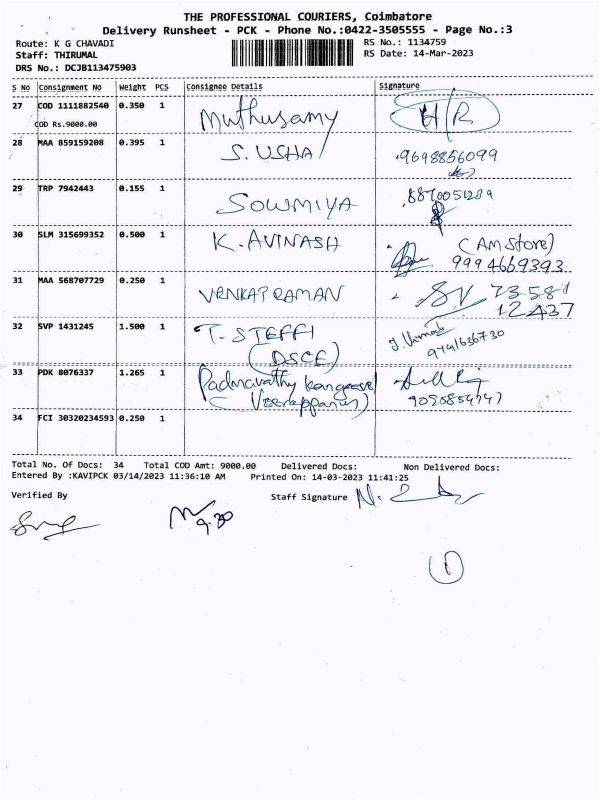 THE PROFESSIONAL COURIERS, Coimbatore
Delivery Runsheet - PCK - Phone No.:0422-3505555 - Page No.:3
Route: K G CHAVADI
RS No.: 1134759
Staff: THIRUMAL
RS Date: 14-Mar-2023
DRS No.: DCJB113475903
S No Consignment No Weight PCS Consignee Details Signature
27 COD 1111882540 0.350 1 Muthusamy H/R
COD Rs.9000.00
28 MAA 859159208 0.395 1 S. USHA
9698856099
29 TRP 7942443 0.155 1 SOWMIYA
30 SLM 315699352 0.500 1 K. AVINASH (AM Store)
9994669393
31 MAA 568707729 0.250 1 VENKATRAMAN SV 73581
12437
32 SVP 1431245 1.500 1 T. STEFFI
(DSCE) 9791636730
33 PDK 8076337 1.265 1 Padmavathy
34 FCI 30320234593 0.250 1
Total No. Of Docs: 34 Total COD Amt: 9000.00 Delivered Docs: Non Delivered Docs:
Entered By :KAVIPCK 03/14/2023 11:36:10 AM Printed On: 14-03-2023 11:41:25
Verified By Staff Signature
9.30
1